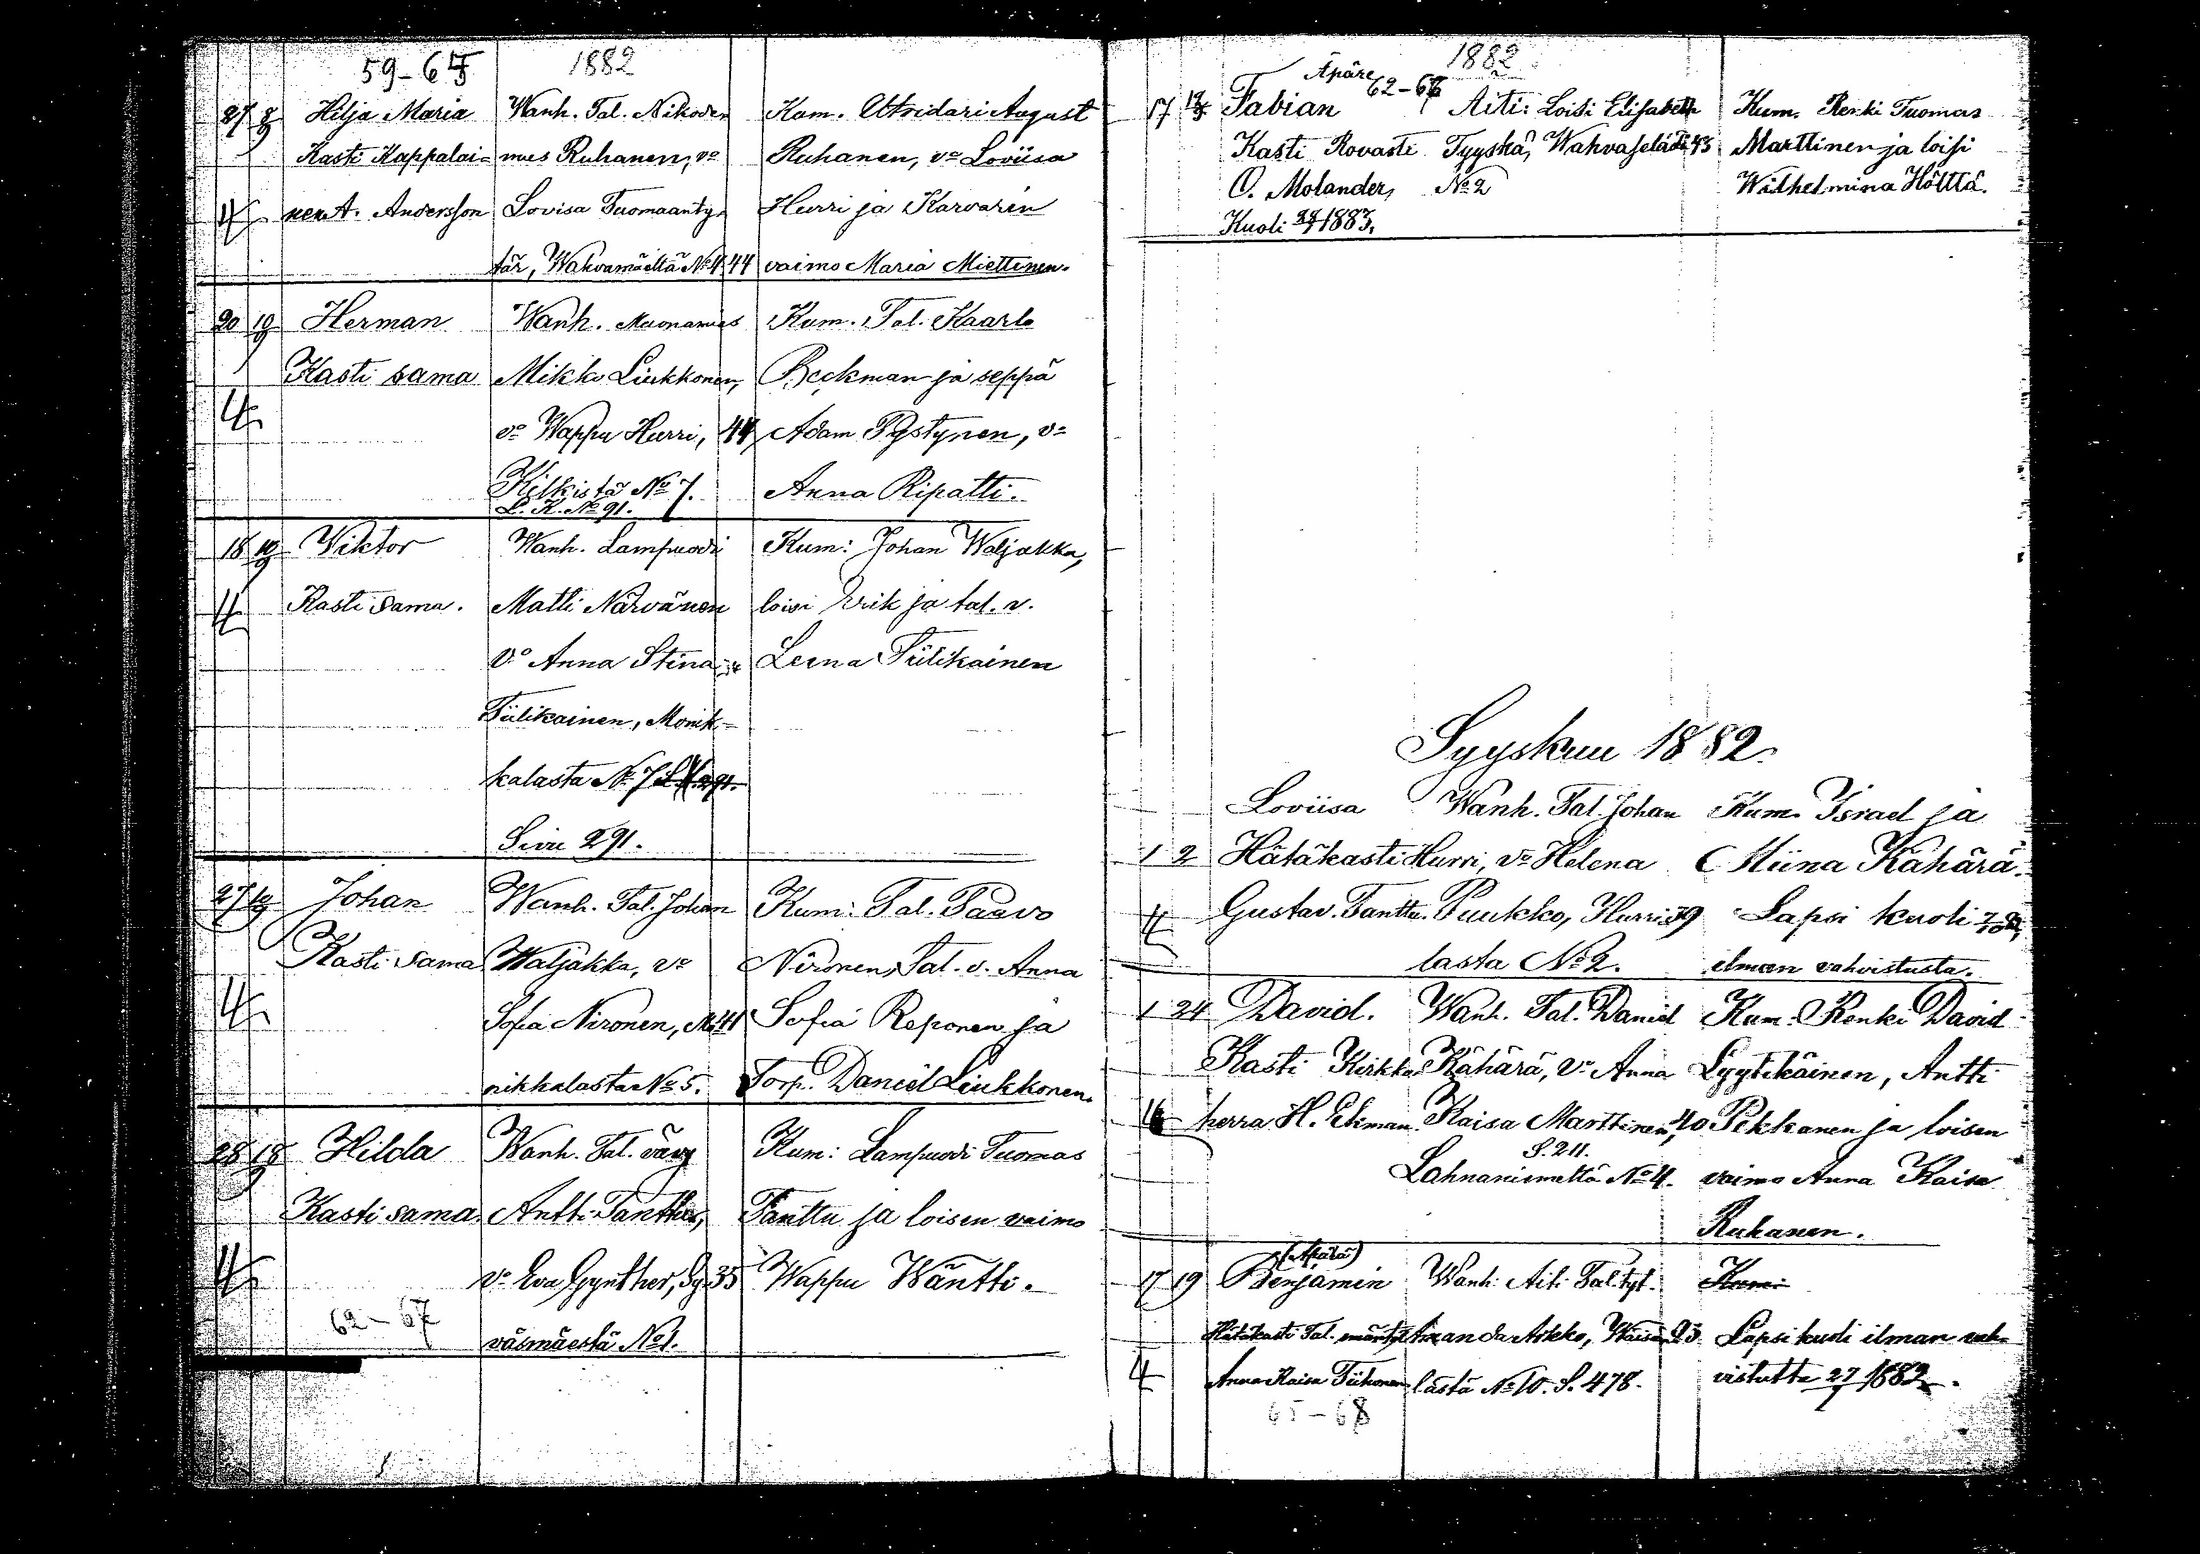 59-67
1882
27 Hilja Maria Wanh. Tal. Nikode- Kum. Utridari August
Kasti Kappalai- mus Ruhanen, vo Ruhanen, vo Loviisa
nen A. Andersson Lovisa Tuomaanty- Hurri ja Karvarin
tär, Wahvamäeltä No 4 44 vaimo Maria Miettinen.
20 19/9 Herman Wanh. Muonamies Kum. Tal. Kaarlo
Kasti sama Mikko Liukkonen, Beckman ja seppä
4 vo Wappu Hurri, 44 Adam Pystynen, vo
Hilkistä No 7. Anna Ripatti.
L. K. No 91.
18 19/9 Wiktor Wanh. Lampuodi Kum: Johan Waljakka,
4 Kasti sama. Matti Närvänen loisi Erik ja tal. v.
vo Anna Stina Leena Tiilikainen
Tiilikainen, Monik-
kalasta No 7
Sivu 291.
27 19/9 Johan Wanh. Tal. Johan Kum: Tal. Paavo
Kasti sama Waljakka, vo Nironen, Tal. v. Anna
4 Sofia Nironen, Mo- 41 Sofia Reponen ja
nikkalasta No 5. Torp. Daniel Liukkonen.
28 18/9 Hilda Wanh. Tal. vävy Kum: Lampuodi Tuomas
Kasti sama Antti Tanttu, Tanttu ja loisen vaimo
4 vo Eva Gynther, Sy- 35 Wappu Wäntti.
62-67 väsmäestä No 1.
1882
Äpäre 62-67
17 Fabian Äiti: Loisi Elisabeth Kum. Renki Tuomas
Kasti Rovasti Tyyskä, Wahvaselältä 43 Marttinen ja loisi
O. Molander, No 2 Wilhelmina Hölttä.
Kuoli 1883.
Syyskuu 1882.
Loviisa Wanh. Tal. Johan Kum. Israel ja
1 2 Hätäkasti Hurri, vo Helena Miina Kähärä.
4 Gustav Tanttu. Puukko, Hurri- 39 Lapsi kuoli
lasta No 2. ilman vahvistusta.
1 24 David. Wanh. Tal. Daniel Kum: Renki David
Kasti Kirkko- Kähärä, vo Anna Lyytikäinen, Antti
herra H. Ekman Kaisa Marttinen, 40 Pekkanen ja loisen
S. 211.
Lahnaniemeltä No 4. vaimo Anna Kaisa
Ruhanen.
(Äpärä)
17 19 Benjamin Wanh: Äiti Tal. tyt. Kum:
Hätäkasti Tal. emäntä Amanda Arkko, 23 Lapsi kuoli ilman vah-
4 Anna Kaisa Tiihonen lasta No 10. S. 478. vistutta 27/9 1882.
65-68